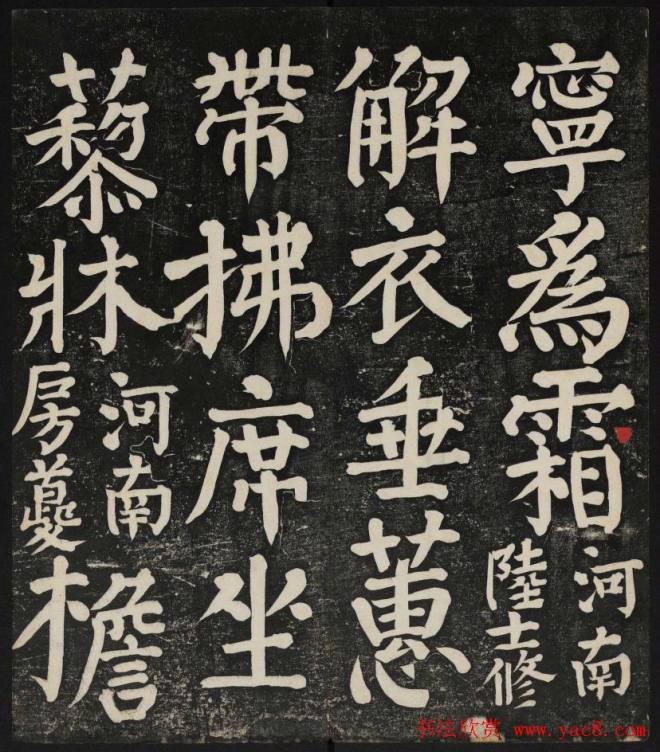 寧爲霜河南陸士修
解衣垂蕙
帶拂席坐
藜牀河南房夔檐
书法欣赏 www.yac8.com